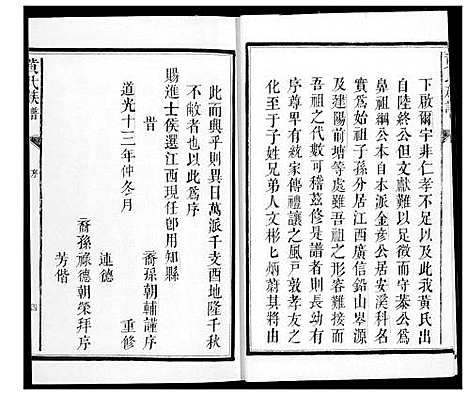 下啟爾宇非仁孝不足以及此我黃氏出
自陸終公但文獻難以良存而守棻公爲
鼻祖綱公本自本派金彥公居安溪科名
實爲始祖子孫分居江西廣信鉛山岑源
及建陽前塘等處雖吾祖之形容難接于
吾祖之代數可稽茲修是譜者則長幼有
序尊卑有統家傳禮讓之風戸敦孝友之
化至於子姓兄弟人文彬匕炳蔚其將由
此而興乎則異日萬派千支酉地隆千秋
不敝者也以此爲序
賜進士侯選江西現任卽用知縣
旹
裔孫朝輔謹序
道光十三年仲冬月
重修
連德
裔孫祿德朝榮拜序
芳偕
黃氏族譜
序
四